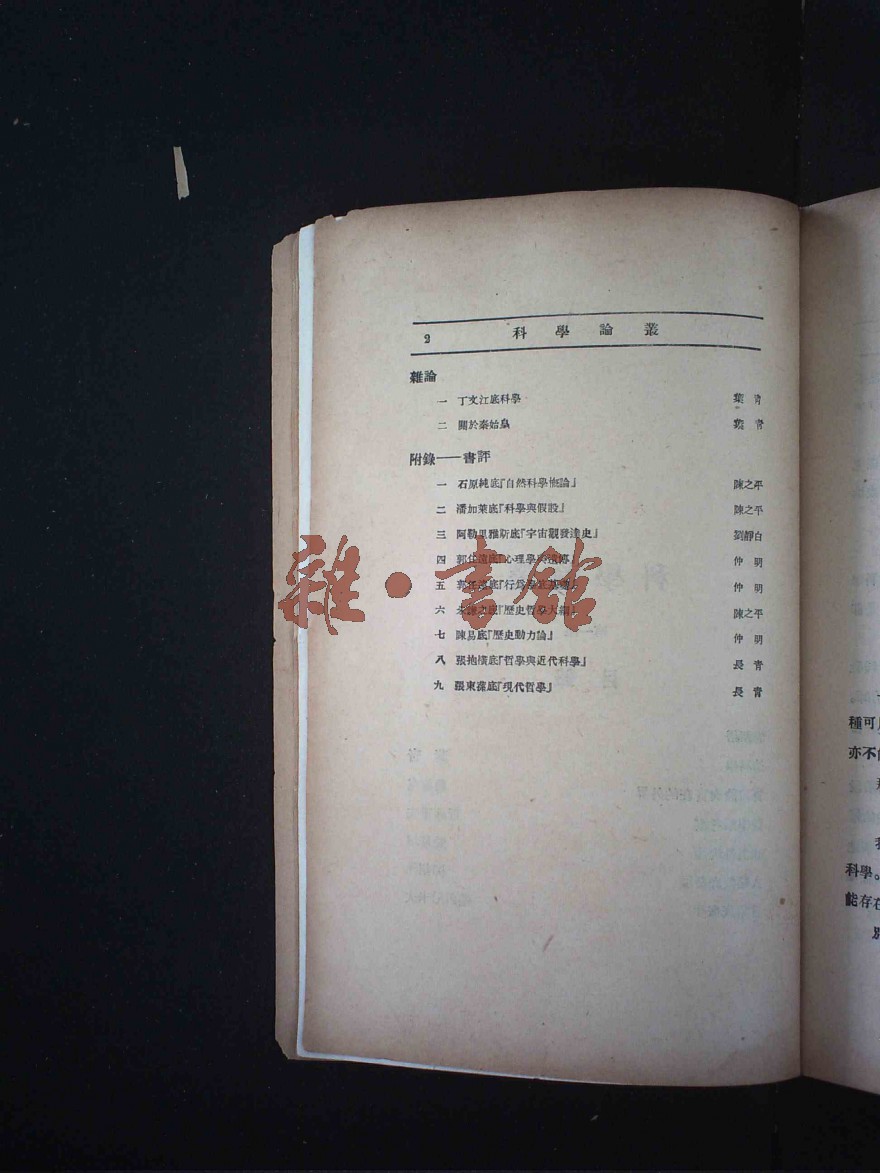 2 科學論叢
雜論
一 丁文江底科學 葉青
二 關於秦始皇 葉青
附錄——書評
一 石原純底『自然科學槪論』 陳之平
二 潘加萊底『科學與假設』 陳之平
三 阿勒里雅斯底『宇宙觀發達史』 劉靜白
四 郭任遠底『心理學與遺傳』 仲明
五 郭任遠底『行爲學底基礎』 仲明
六 朱謙之底『歷史哲學大綱』 陳之平
七 陳易底『歷史動力論』 仲明
八 張抱橫底『哲學與近代科學』 長青
九 張東蓀底『現代哲學』 長青
雜·書館
種可
亦不
科學。
能存在